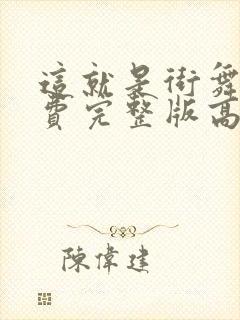 這就是街舞
費完整版高
陳偉建